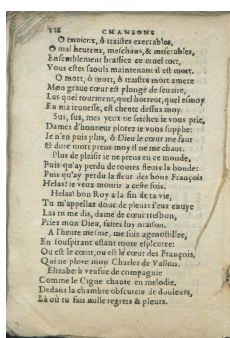 116 CHANSONS
O enuieux, ô traistes execrables,
O mal heureux, meschans, & miserables,
Ensemblement brassiez ce cruel tort,
Vous estes saouls maintenant il est mort.
O mort, ô mort, ô traistre mort amere
Mon graue cœur est plongé de seuaire,
Las quel tourment, quel horreur, quel
En ma ieunesse, est cheute dessus moy.
Sus, sus, mes yeux ne seichez ie vous prie,
Dames d'honneur plorez ie vous supplie:
Ie n'en puis plus, ô Dieu le cœur me faut
O dure mort prens moy il ne me chaut.
Plus de plaisir ie ne prens en ce monde,
Puis qu'ay perdu de toutes fleurs la bonde:
Puis qu'ay perdu la fleur des bons François
Helas! ie veux mourir a ceste fois.
Helas! bon Roy a la fin de ta vie,
Tu m'appellas donc de pleurs i'euz enuye
Las tu me dis, dame de cœur tresbon,
Priez mon Dieu, faites luy oraison.
A l'heure mesme, me suis agenoillee,
En souspirant estant toute esploree:
Ou est le cœur, ou est le cœur des François,
Qui ne plore mon Charles de Vallois.
Elizabeth veufue de compagnie
Comme le Cigne chante en melodie,
Dedans la chambre obscurcie de douleurs,
Là où tu fais mille regrets & pleurs.